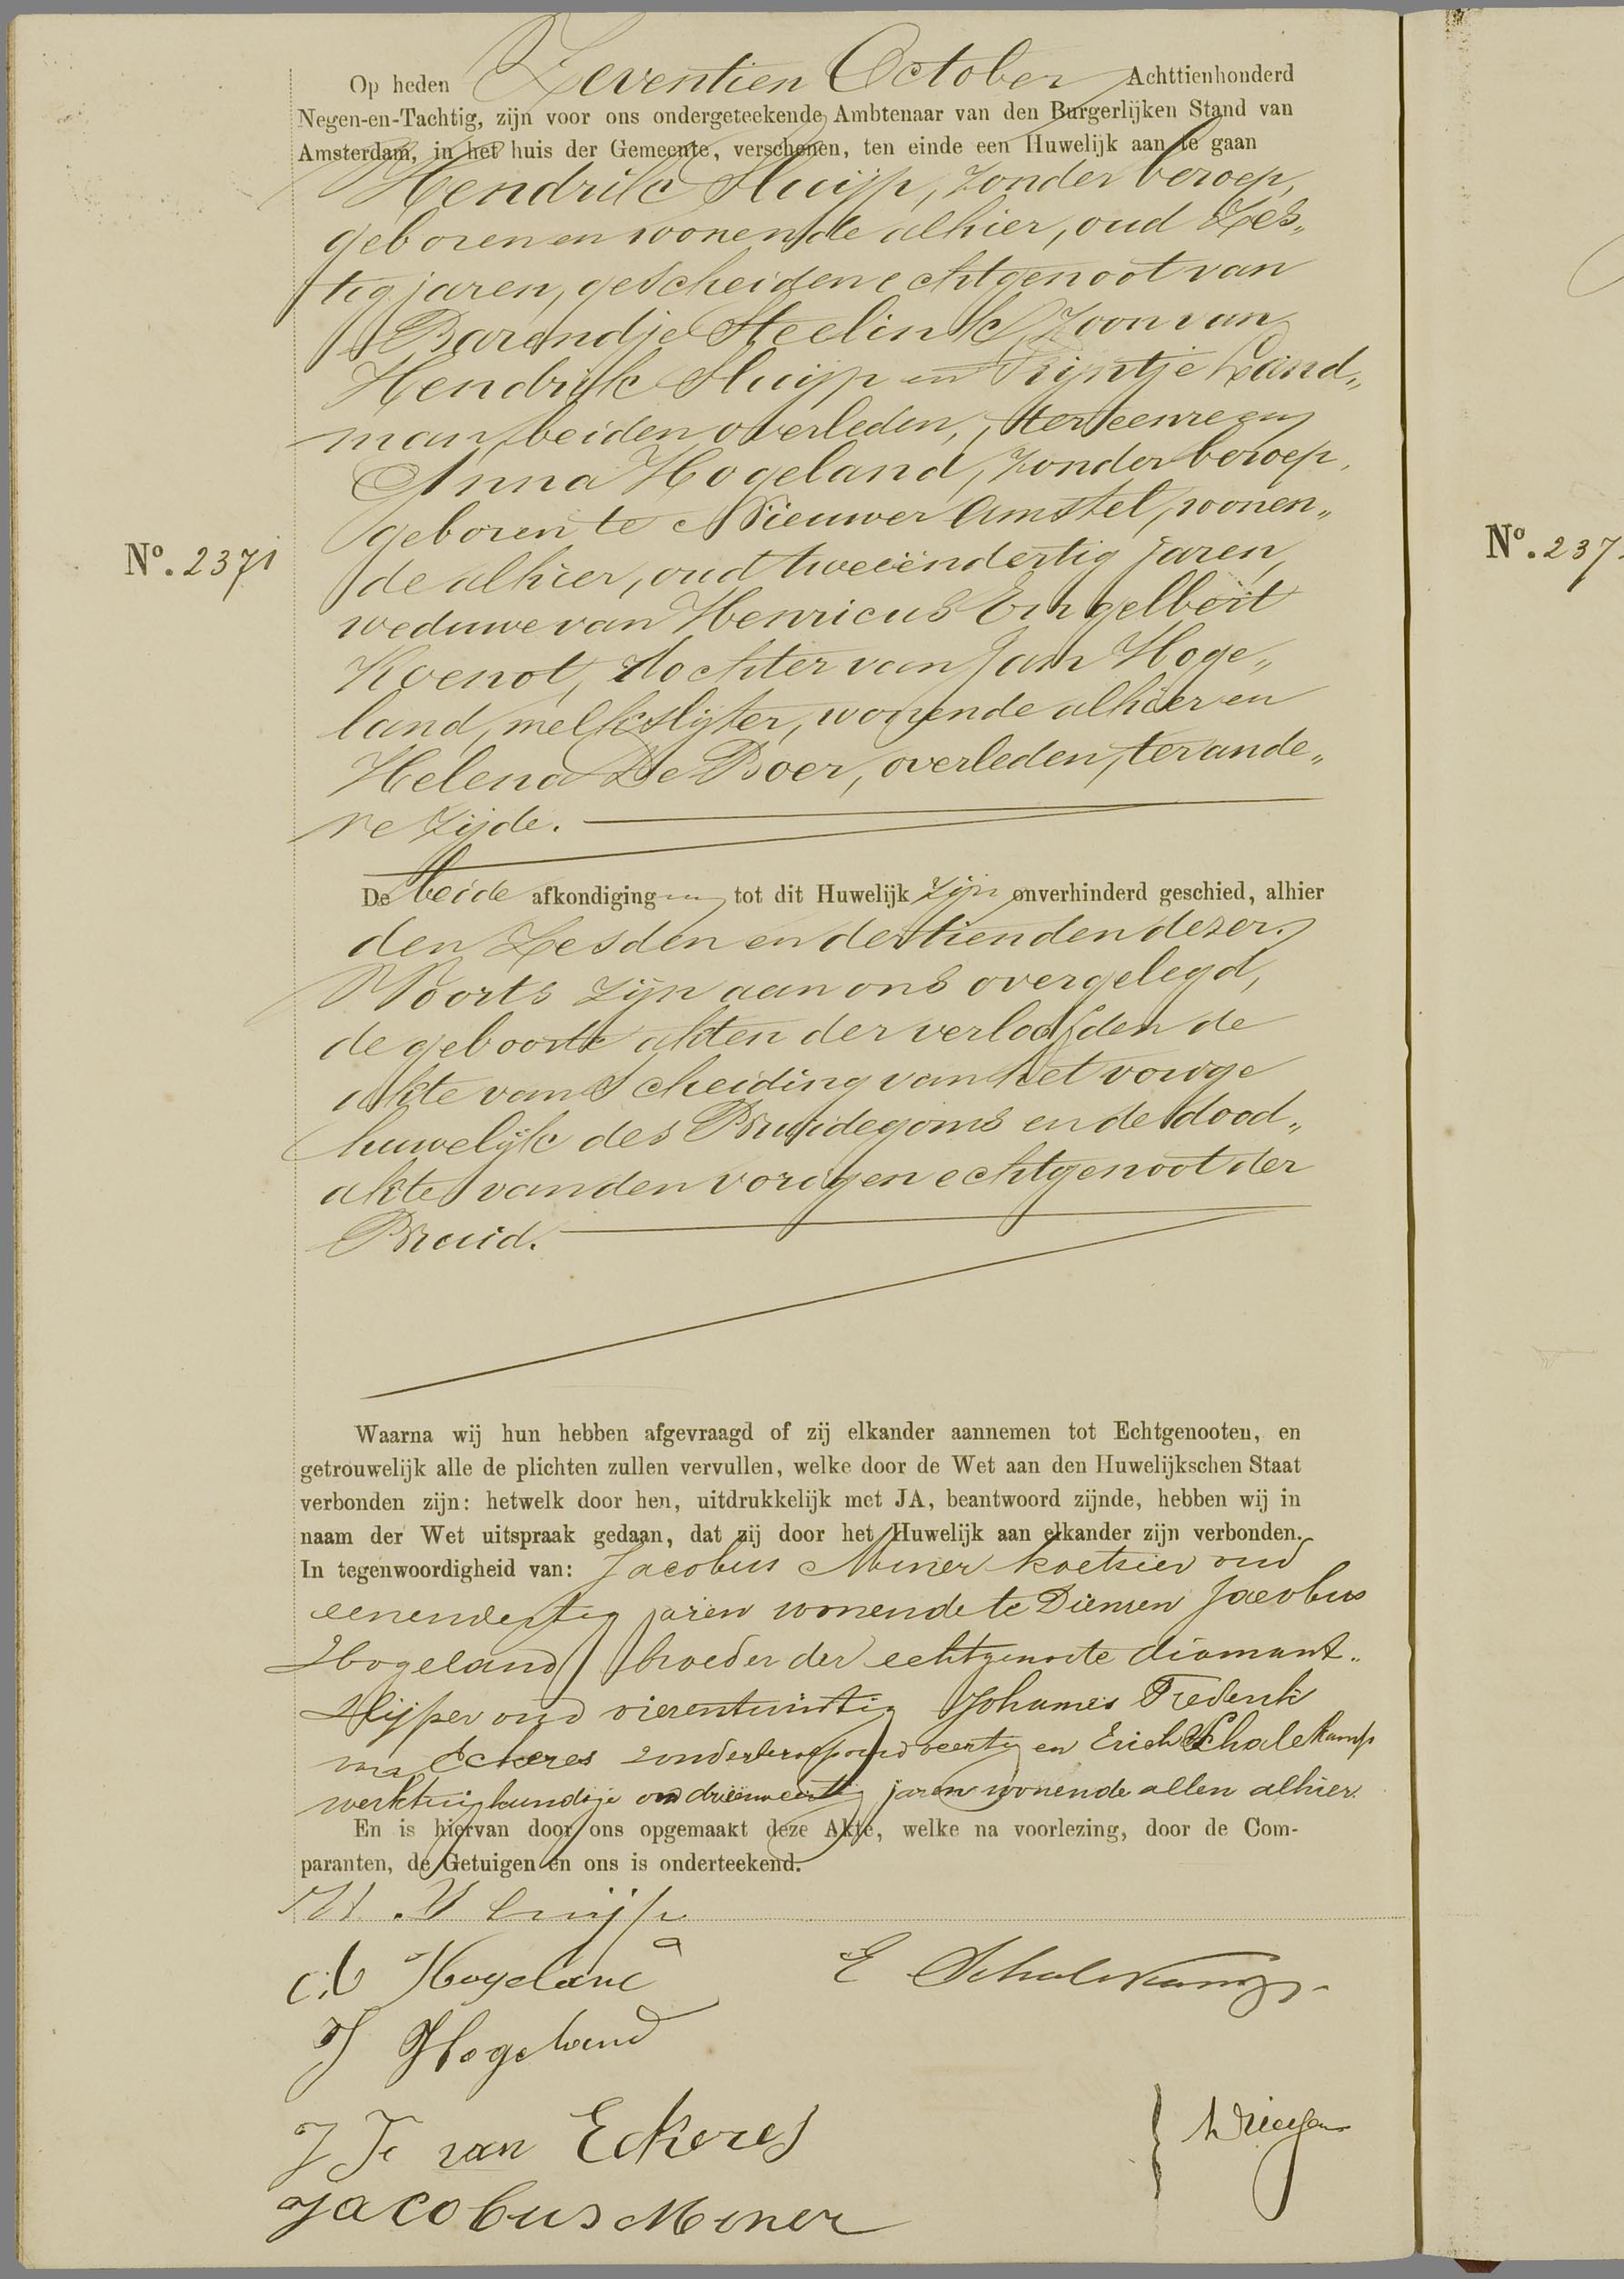 Op heden Zeventien October Achttienhonderd
Negen-en-Tachtig, zijn voor ons ondergeteekende Ambtenaar van den Burgerlijken Stand van
Amsterdam, in het huis der Gemeente, verschenen, ten einde een Huwelijk aan te gaan
Hendrik Sluijp, zonder beroep,
geboren en wonende alhier, oud Zes„
tig jaren, gescheiden echtgenoot van
Barendje Steelink, Zoon van
Hendrik Sluijp en Trijntje Land„
man, beiden overleden, ter eenre en
Anna Hogeland, zonder beroep,
geboren te Nieuwer Amstel, wonen„
No. 2371
de alhier, oud tweeëndertig jaren,
weduwe van Henricus Engelbert
Koenot, dochter van Jan Hoge„
land, melkslijter, wonende alhier en
Helena De Boer, overleden, ter ande„
re Zijde.
De beide afkondigingen tot dit Huwelijk zijn onverhinderd geschied, alhier
den Zesden en dertienden dezer.
Voorts zijn aan ons overgelegd,
de geboorte akten der verloofden de
akte van Scheiding van het vorige
huwelijk des Bruidegoms en de dood„
akte van den vorigen echtgenoot der
Bruid.
Waarna wij hun hebben afgevraagd of zij elkander aannemen tot Echtgenooten, en
getrouwelijk alle de plichten zullen vervullen, welke door de Wet aan den Huwelijkschen Staat
verbonden zijn: hetwelk door hen, uitdrukkelijk met JA, beantwoord zijnde, hebben wij in
naam der Wet uitspraak gedaan, dat zij door het Huwelijk aan elkander zijn verbonden.
In tegenwoordigheid van: Jacobus koetsier oud
eenendertig jaren wonende te Diemen Jacobus
Hogeland broeder der echtgenoote diamant„
slijper oud vierentwintig Johannes Frederik
van Eckeres zonder beroep oud veertig en Erich Schalekamp
werktuigkundige oud drieenveertig jaren wonende allen alhier.
En is hiervan door ons opgemaakt deze Akte, welke na voorlezing, door de Com-
paranten, de Getuigen en ons is onderteekend.
H. Sluijp
A Hogeland
E Schalekamp
J Hogeland
J F van Eckeres
Jacobus
No. 237